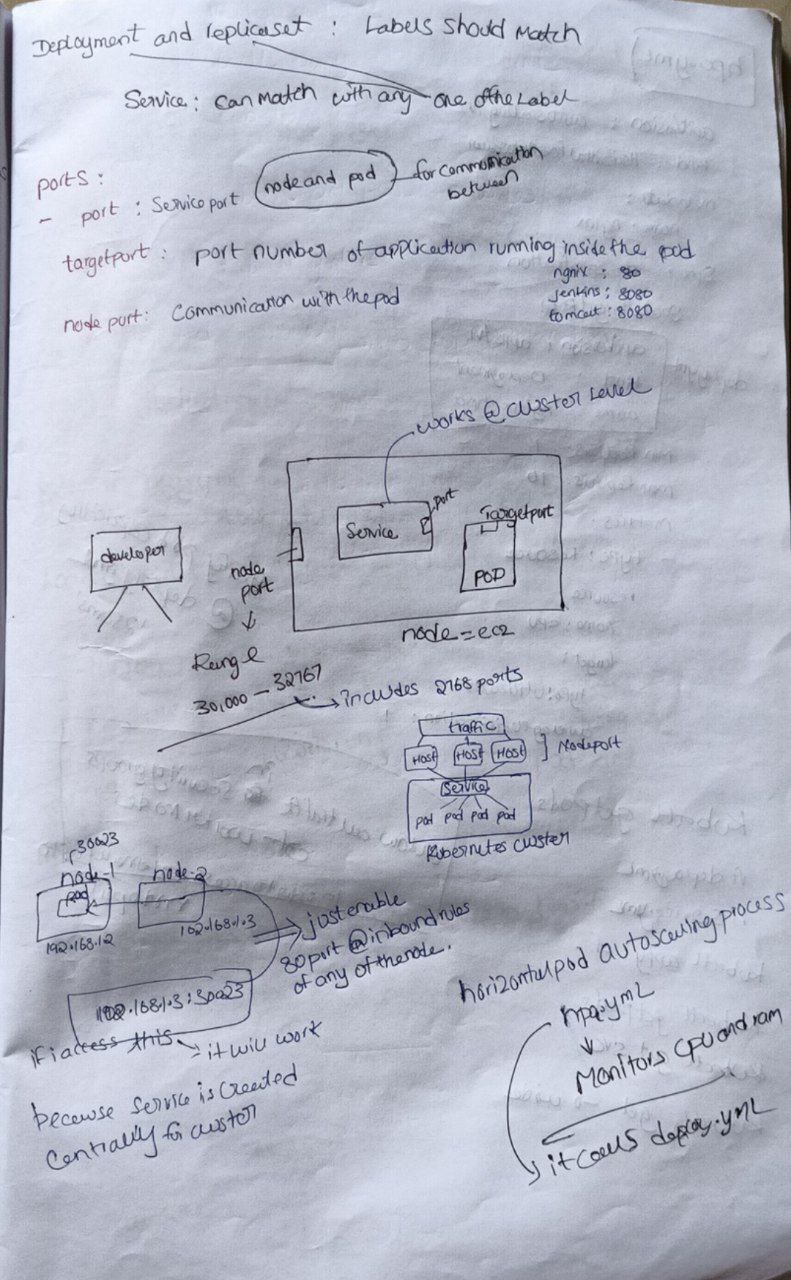 Deployment and replicaset : Labels Should Match
Service : Can Match with any one of the Label
ports :
- port : Service port (node and pod) for commonication between
targetport : port number of application running inside the pod
ngnix : 80
jenkins : 8080
tomcat : 8080
node port : Communication with the pod
works @ cluster Level
developer
node port
Service
port
Targetport
POD
node = ec2
Range
30,000 - 32767
includes 2768 ports
traffic
Host Host Host
Nodeport
Service
pod pod pod pod
Kubernetes cluster
30023
node-1 node-2
Pod
192.168.1.2
192.168.1.3
just enable
80 port @ inbound rules
of any of the node.
192.168.1.3:30023
if i access this it will work
because service is created
centrally for cluster
horizontal pod autoscaling process
hpa.yml
Monitors CPU and ram
it calls deploy.yml